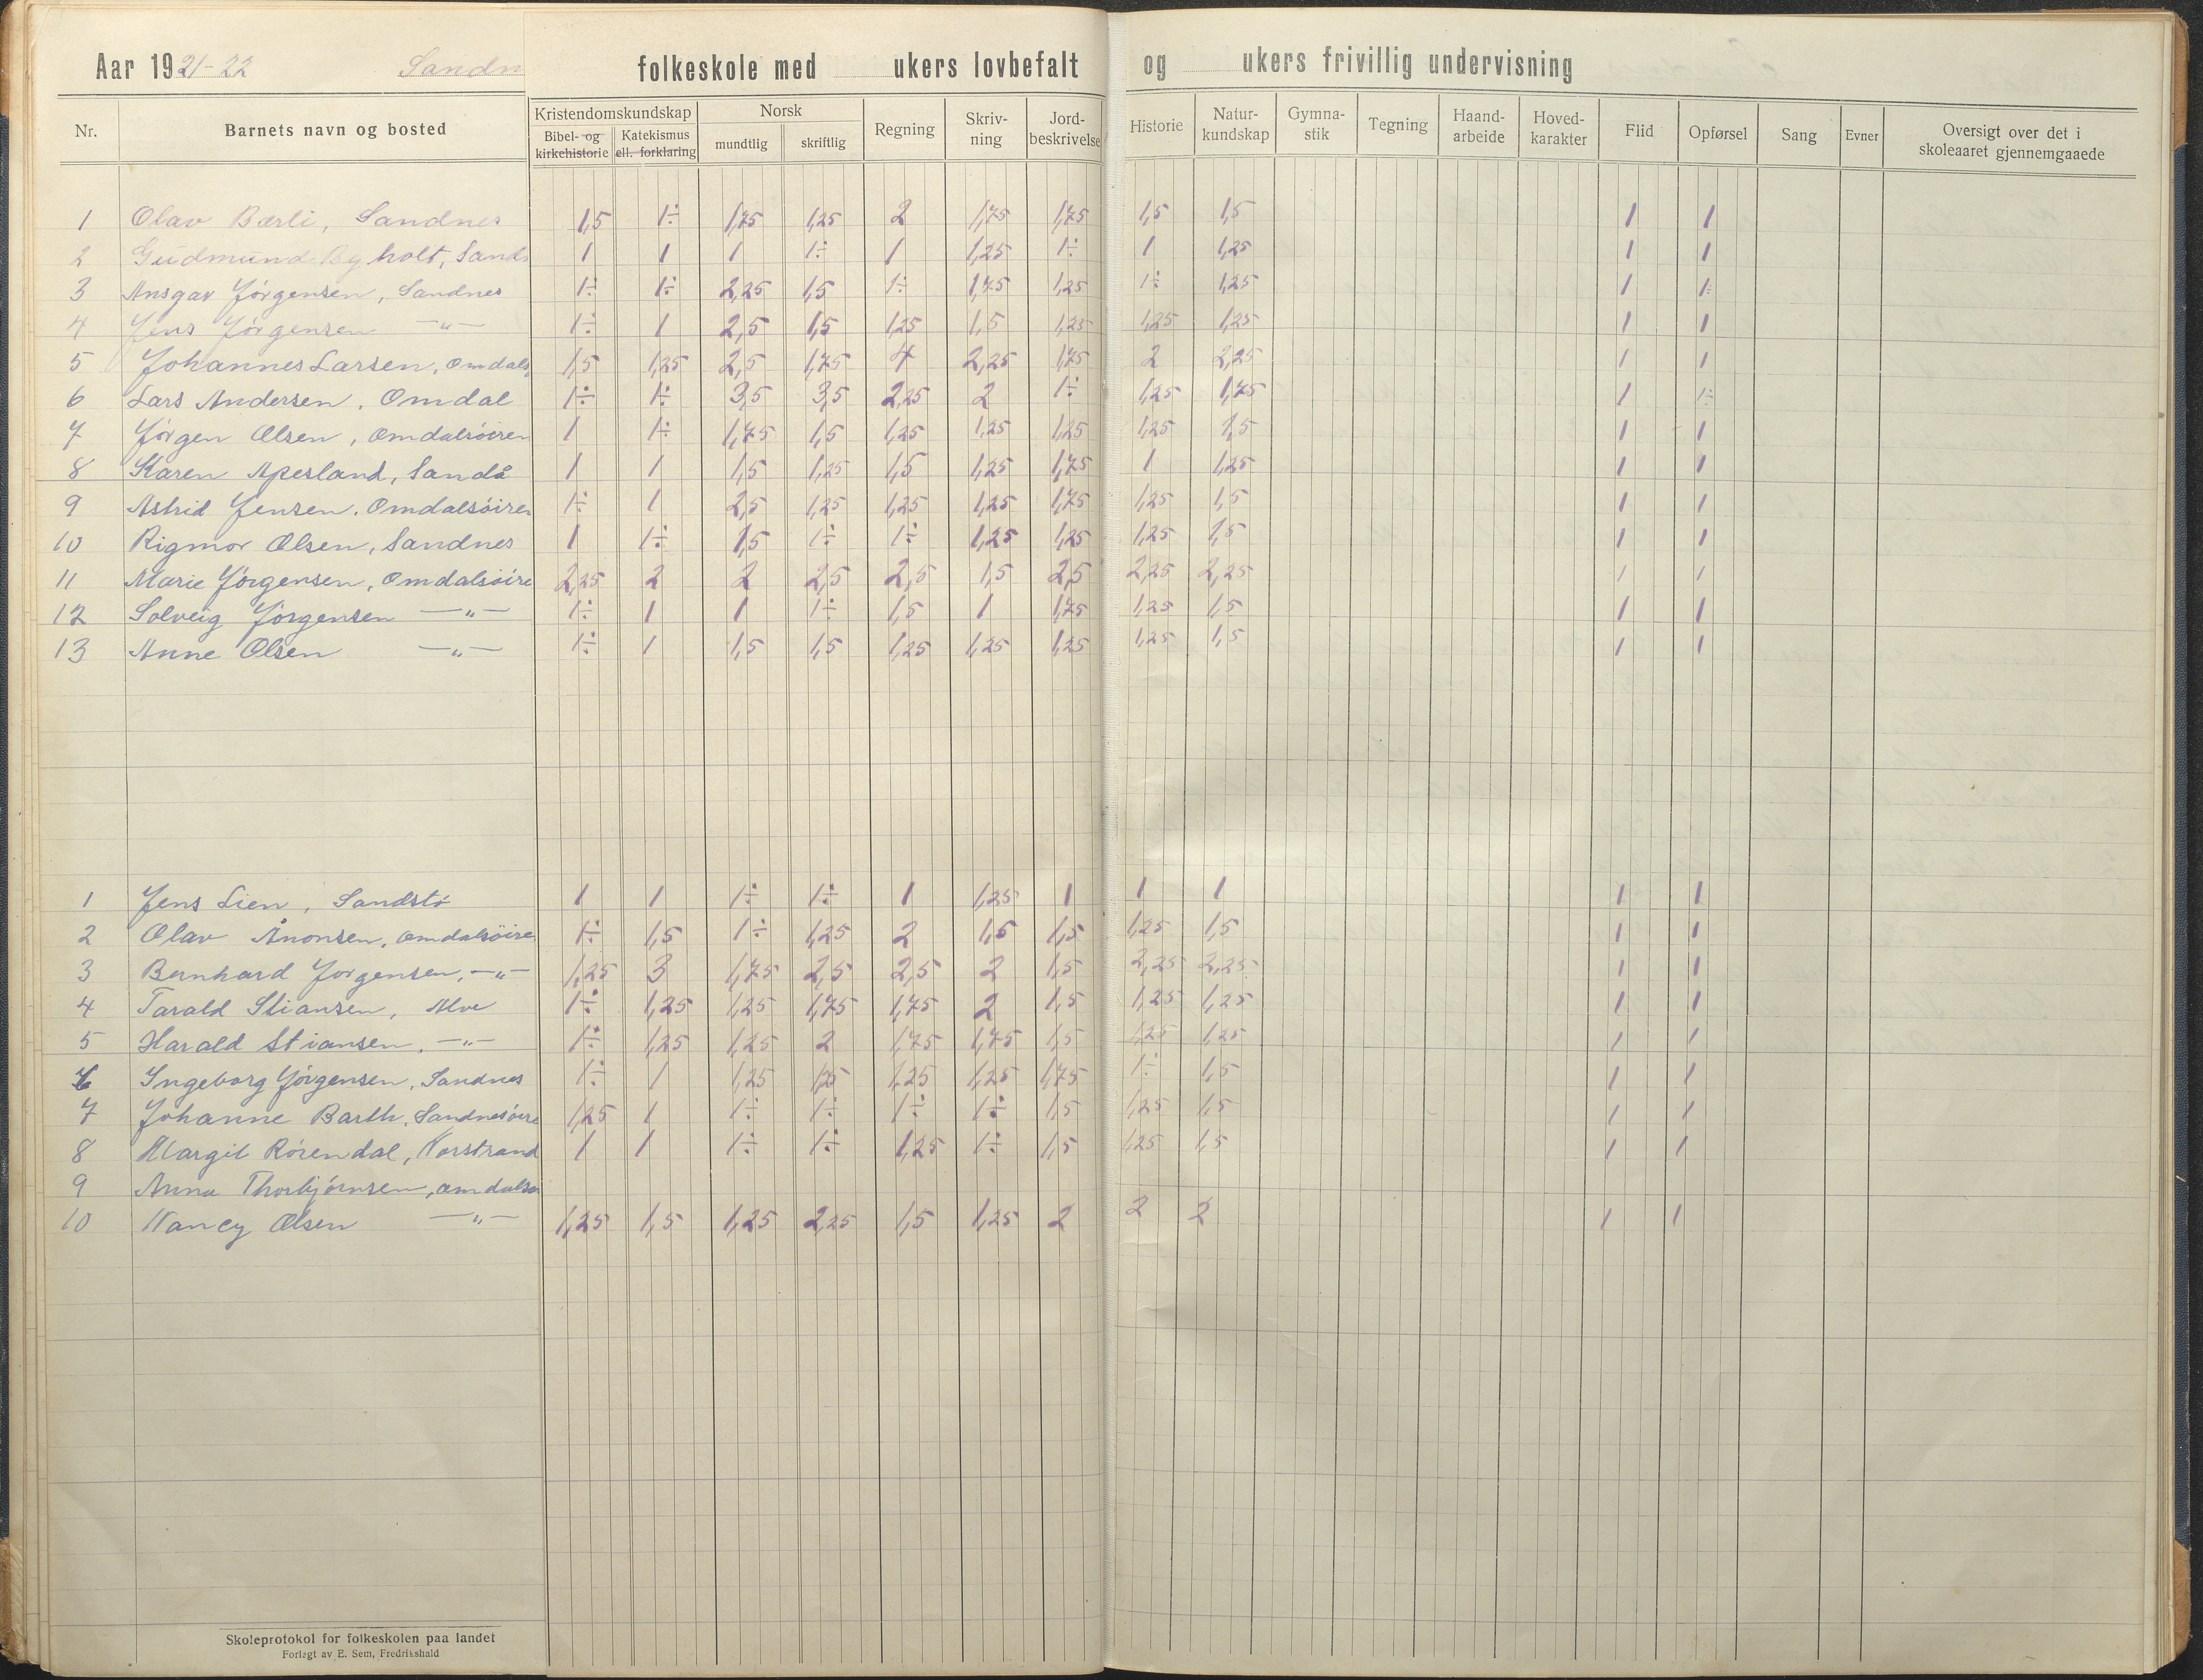 Aar 1921-22 Sandn folkeskole med ukers lovbefalt og ukers frivillig undervisning
Nr. Barnets navn og bosted Kristendomskundskap Bibel- og kirkehistorie Katekismus ell. forklaring Norsk mundtlig skriftlig Regning Skriv-ning Jord-beskrivelse Historie Natur-kundskap Gymna-stik Tegning Haand-arbeide Hoved-karakter Flid Opførsel Sang Evner Oversigt over det i skoleaaret gjennemgaaede
1 Olav Bærli, Sandnes 1,5 1÷ 1,75 1,25 2 1,75 1,75 1,5 1,5 1 1
2 Gudmund Bygholt, Sands 1 1 1 1÷ 1 1,25 1÷ 1 1,25 1 1
3 Ansgar Jörgensen, Sandnes 1÷ 1÷ 2,25 1,5 1÷ 1,75 1,25 1÷ 1,25 1 1÷
4 Jens Jörgensen —"— 1÷ 1 2,5 1,5 1,25 1,5 1,25 1,25 1,25 1 1
5 Johannes Larsen, Omdals 1,5 1,25 2,5 1,75 4 2,25 1,75 2 2,25 1 1
6 Lars Andersen, Omdal 1÷ 1÷ 3,5 3,5 2,25 2 1÷ 1,25 1,75 1 1÷
7 Jörgen Olsen, Omdalsöiren 1 1÷ 1,75 1,5 1,25 1,25 1,25 1,25 1,5 1 1
8 Karen Apesland, Sandå 1 1 1,5 1,25 1,5 1,25 1,75 1 1,25 1 1
9 Astrid Jensen, Omdalsöiren 1÷ 1 2,5 1,25 1,25 1,25 1,75 1,25 1,5 1 1
10 Rigmor Olsen, Sandnes 1 1÷ 1,5 1÷ 1÷ 1,25 1,25 1,25 1,5 1 1
11 Marie Jörgensen, Omdalsöire 2,25 2 2 2,5 2,5 1,5 2,5 2,25 2,25 1 1
12 Solveig Jörgensen —"— 1÷ 1 1 1÷ 1,5 1 1,75 1,25 1,5 1 1
13 Anne Olsen —"— 1÷ 1 1,5 1,5 1,25 1,25 1,25 1,25 1,5 1 1
1 Jens Lien, Sandstö 1 1 1÷ 1÷ 1 1,25 1 1 1 1 1
2 Olav Ånonsen, Omdalsöire 1÷ 1,5 1÷ 1,25 2 1,5 1,5 1,25 1,5 1 1
3 Bernhard Jörgensen, —"— 1,25 3 1,75 2,5 2,5 2 1,5 2,25 2,25 1 1
4 Tarald Stiansen, Alve 1÷ 1,25 1,25 1,75 1,75 2 1,5 1,25 1,25 1 1
5 Harald Stiansen, —"— 1÷ 1,25 1,25 2 1,75 1,75 1,5 1,25 1,25 1 1
6 Ingeborg Jörgensen, Sandnes 1÷ 1 1,25 1,25 1,25 1,25 1,75 1÷ 1,5 1 1
7 Johanne Barth, Sandnesöire 1,25 1 1÷ 1÷ 1÷ 1÷ 1,5 1,25 1,5 1 1
8 Margit Rörendal, Norstrand 1 1 1÷ 1÷ 1,25 1÷ 1,5 1,25 1,5 1 1
9 Anna Thorbjörnsen, Omdalsö
10 Nancy Olsen —"— 1,25 1,5 1,25 2,25 1,5 1,25 2 2 2 1 1
Skoleprotokol for folkeskolen paa landet
Forlagt av E. Sem, Fredrikshald